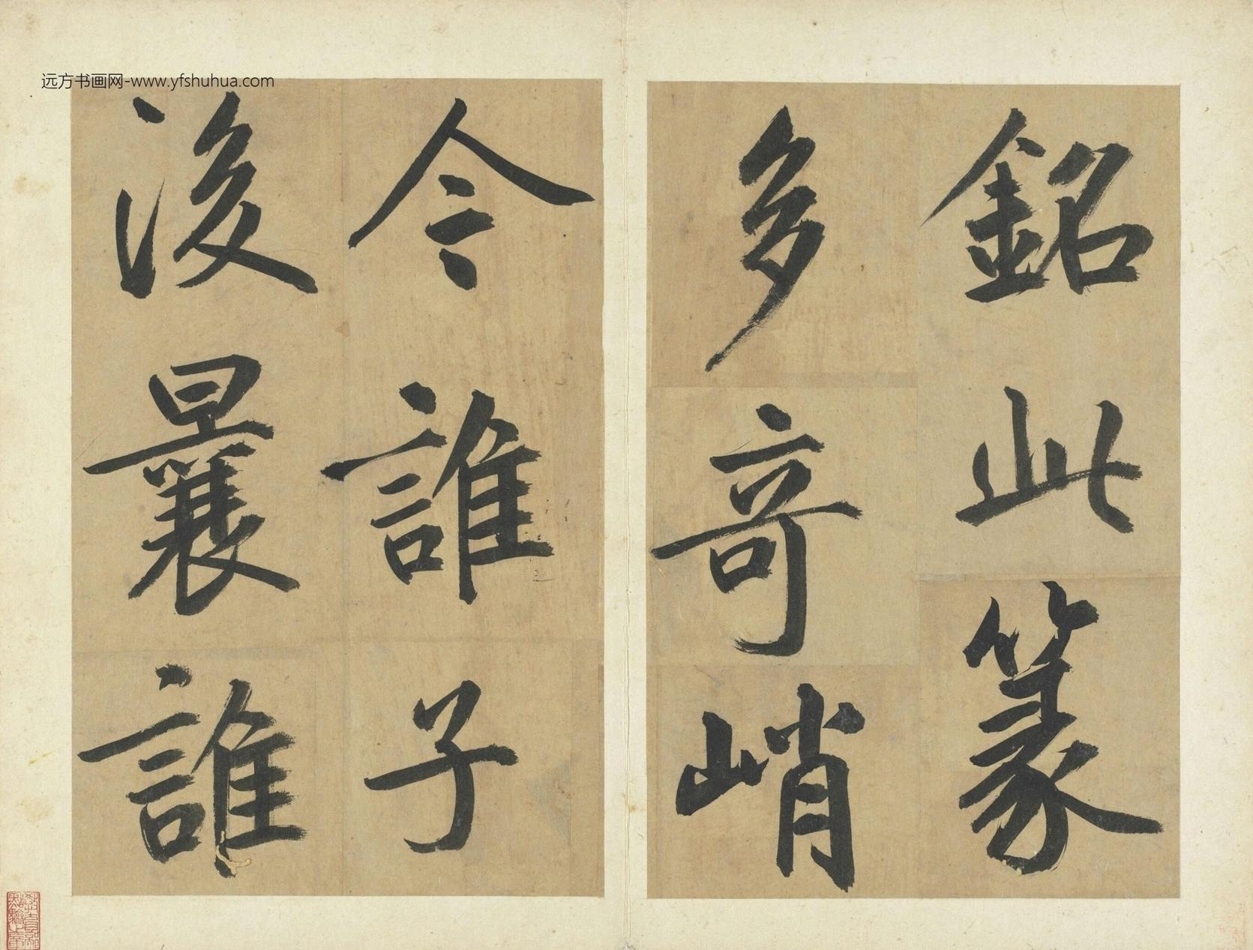 远方书画网-www.yfshuhua.com
銘此篆
多奇峭
令誰子
後曩誰